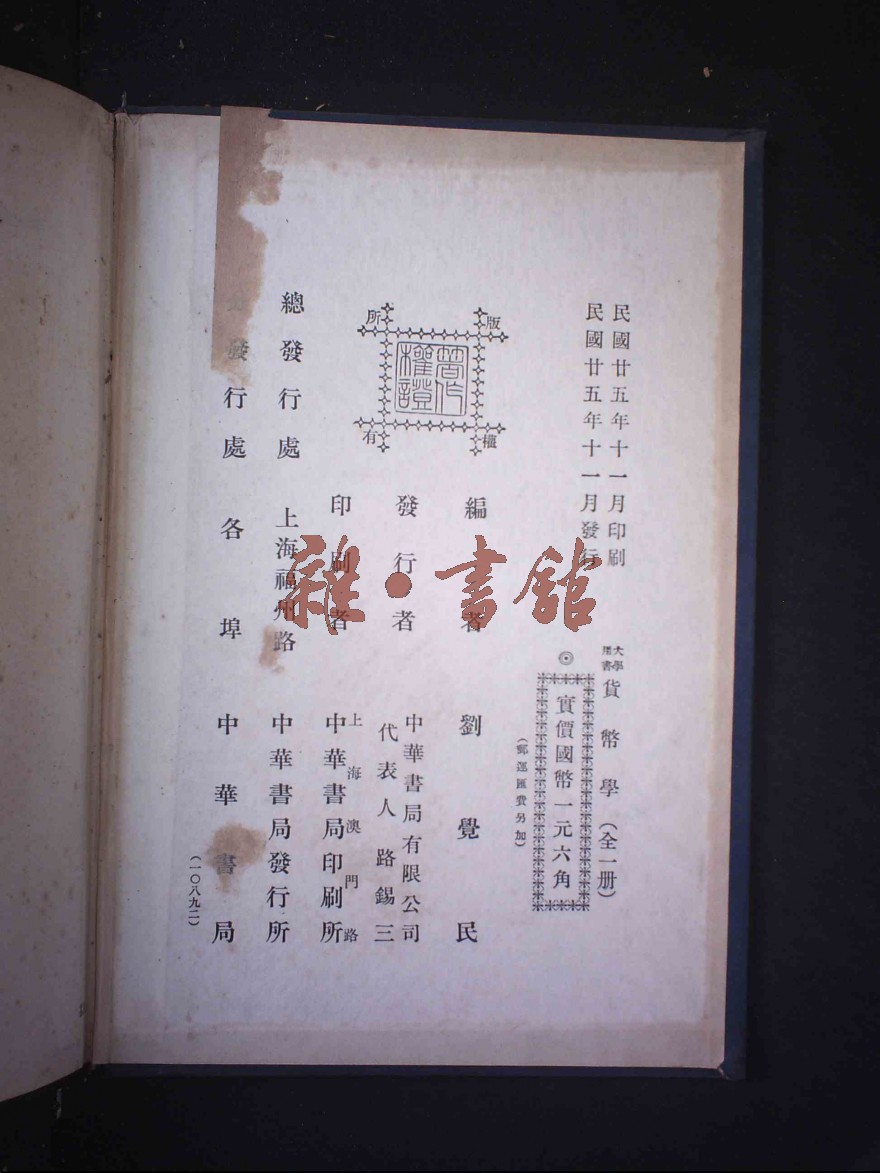 民國廿五年十一月印刷
民國廿五年十一月發行
大學用書
貨幣學（全一册）
◎
實價國幣一元六角
（郵運匯費另加）
版權所有
著作權證
編者 劉覺民
發行者 中華書局有限公司
代表人 路錫三
印刷者 上海澳門路
中華書局印刷所
總發行處 上海福州路 中華書局發行所
發行處 各埠 中華書局
（一〇八九二）
雜·書館